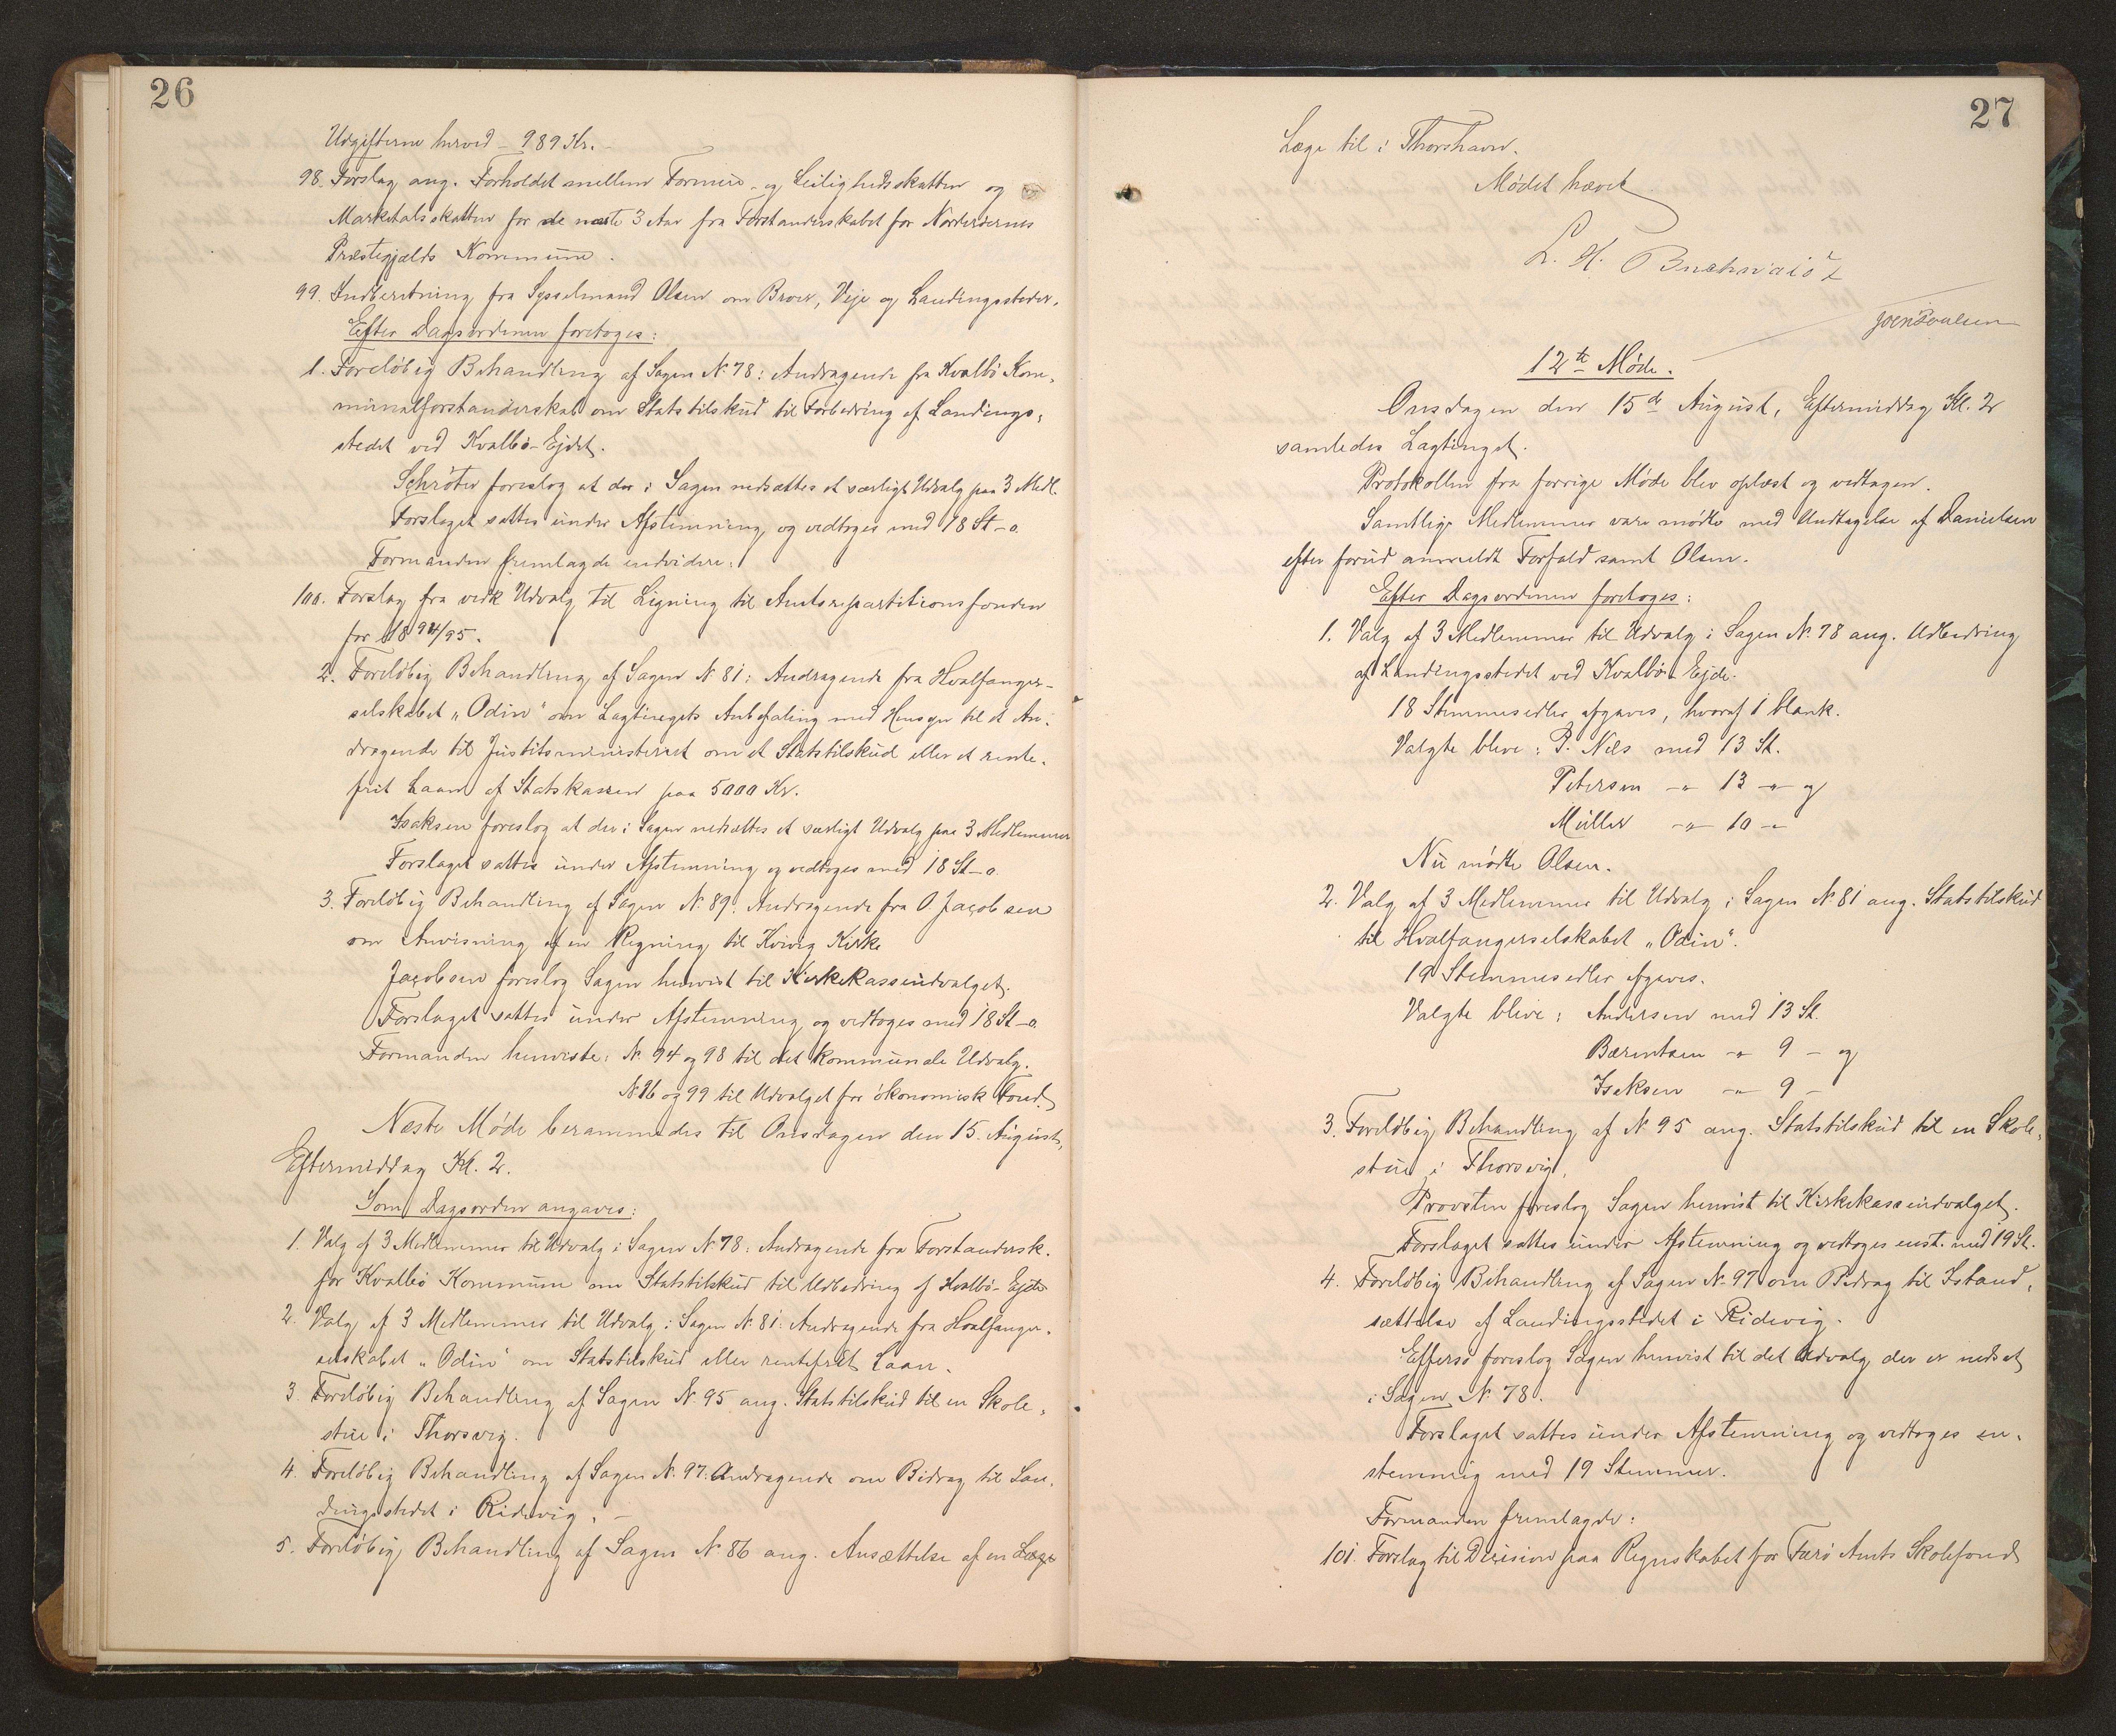 26
Udgifterne herved – 989 Kr. –
98. Forslag ang. Forholdet mellem Formue- og Leilighedsskatten og
Marketalsskatten for de næste 3 Aar fra Forstanderskabet for Norderøernes
Præstegjælds Kommune.
99. Indberetning fra Sysselmand Olsen om Broer, Veje og Landingssteder.
Efter Dagsordenen foretoges:
1. Foreløbig Behandling af Sagen N. 78: Andragende fra Kvalbø Kom-
munalforstanderskab om Statstilskud til Forbedring af Landings-
stedet ved Kvalbø-Ejdet.
Schrøter foreslog at der i Sagen nedsættes et særligt Udvalg paa 3 Medl.
Forslaget sattes under Afstemning og vedtoges med 18 St – o.
Formanden fremlagde endvidere:
100. Forslag fra vedk Udvalg til Ligning til Amtsrepartitionsfonden
for 1894/95.
2. Foreløbig Behandling af Sagen N. 81: Andragende fra Hvalfanger-
selskabet „Odin“ om Lagtingets Anbefaling med Hensyn til et An-
dragende til Justitsministeriet om et Statstilskud eller et rente-
frit Laan af Statskassen paa 5000 Kr.
Isaksen foreslog at der i Sagen nedsættes et særligt Udvalg paa 3 Medlemmer
Forslaget sattes under Afstemning og vedtoges med 18 St – o.
3. Foreløbig Behandling af Sagen N. 89: Andragende fra O. Jacobsen
om Anvisning af en Regning til Kvivig Kirke
Jacobsen foreslog Sagen henvist til Kirkekasseudvalget.
Forslaget sattes under Afstemning og vedtoges med 18 St – o.
Formanden henviste: N. 94 og 98 til det kommunale Udvalg.
N. 96 og 99 til Udvalget for økonomisk Fond.
Næste Møde berammedes til Onsdagen den 15. August,
Eftermiddag Kl. 2.
Som Dagsorden angaves:
1. Valg af 3 Medlemmer til Udvalg i Sagen N. 78: Andragende fra Forstandersk.
for Kvalbø Kommune om Statstilskud til Udbedring af Kvalbø-Ejde
2. Valg af 3 Medlemmer til Udvalg i Sagen N. 81: Andragende fra Hvalfanger-
selskabet „Odin“ om Statstilskud eller rentefrit Laan.
3 Foreløbig Behandling af Sagen N. 95 ang. Statstilskud til en Skole-
stue i Thorsvig.
4. Foreløbig Behandling af Sagen N. 97. Andragende om Bidrag til Lan-
dingsstedet i Ridevig. –
5. Foreløbig Behandling af Sagen N. 86 ang. Ansættelse af en Læge
27
Læge til i Thorshavn.
Mødet hævet
L. H.
Joen Poulsen
12te Møde.
Onsdagen den 15de August, Eftermiddag Kl. 2
samledes Lagtinget.
Protokollen fra forrige Møde blev oplæst og vedtagen.
Samtlige Medlemmer vare mødte med Undtagelse af Danielsen
efter forud anmeldt Forfald samt Olsen.
Efter Dagsordenen foretoges:
1. Valg af 3 Medlemmer til Udvalg i Sagen N. 78 ang. Udbedring
af Landingsstedet ved Kvalbø-Ejde.
18 Stemmesedler afgaves, hvoraf 1 blank.
Valgte bleve: P. Næs med 13 St.
Petersen –„– 13 –„– og
Müller –„– 10 –„–
Nu mødte Olsen.
2. Valg af 3 Medlemmer til Udvalg i Sagen N. 81 ang. Statstilskud
til Hvalfangerselskabet „Odin“.
19 Stemmesedler afgaves.
Valgte bleve: Andersen med 13 St.
Bærentsen –„– 9 – og
Isaksen –„– 9 –
3. Foreløbig Behandling af N. 95 ang. Statstilskud til en Skole-
stue i Thorsvig.
Provsten foreslog Sagen henvist til Kirkekasseudvalget.
Forslaget sattes under Afstemning og vedtoges enst. med 19 St.
4. Foreløbig Behandling af Sagen N. 97 om Bidrag til Istand-
sættelse af Landingsstedet i Ridevig.
Effersø foreslog Sagen henvist til det Udvalg der er nedsat
i Sagen N. 78.
Forslaget sattes under Afstemning og vedtoges en-
stemmig med 19 Stemmer.
Formanden fremlagde:
101. Forslag til Decision paa Regnskabet for Færø Amts Skolefond